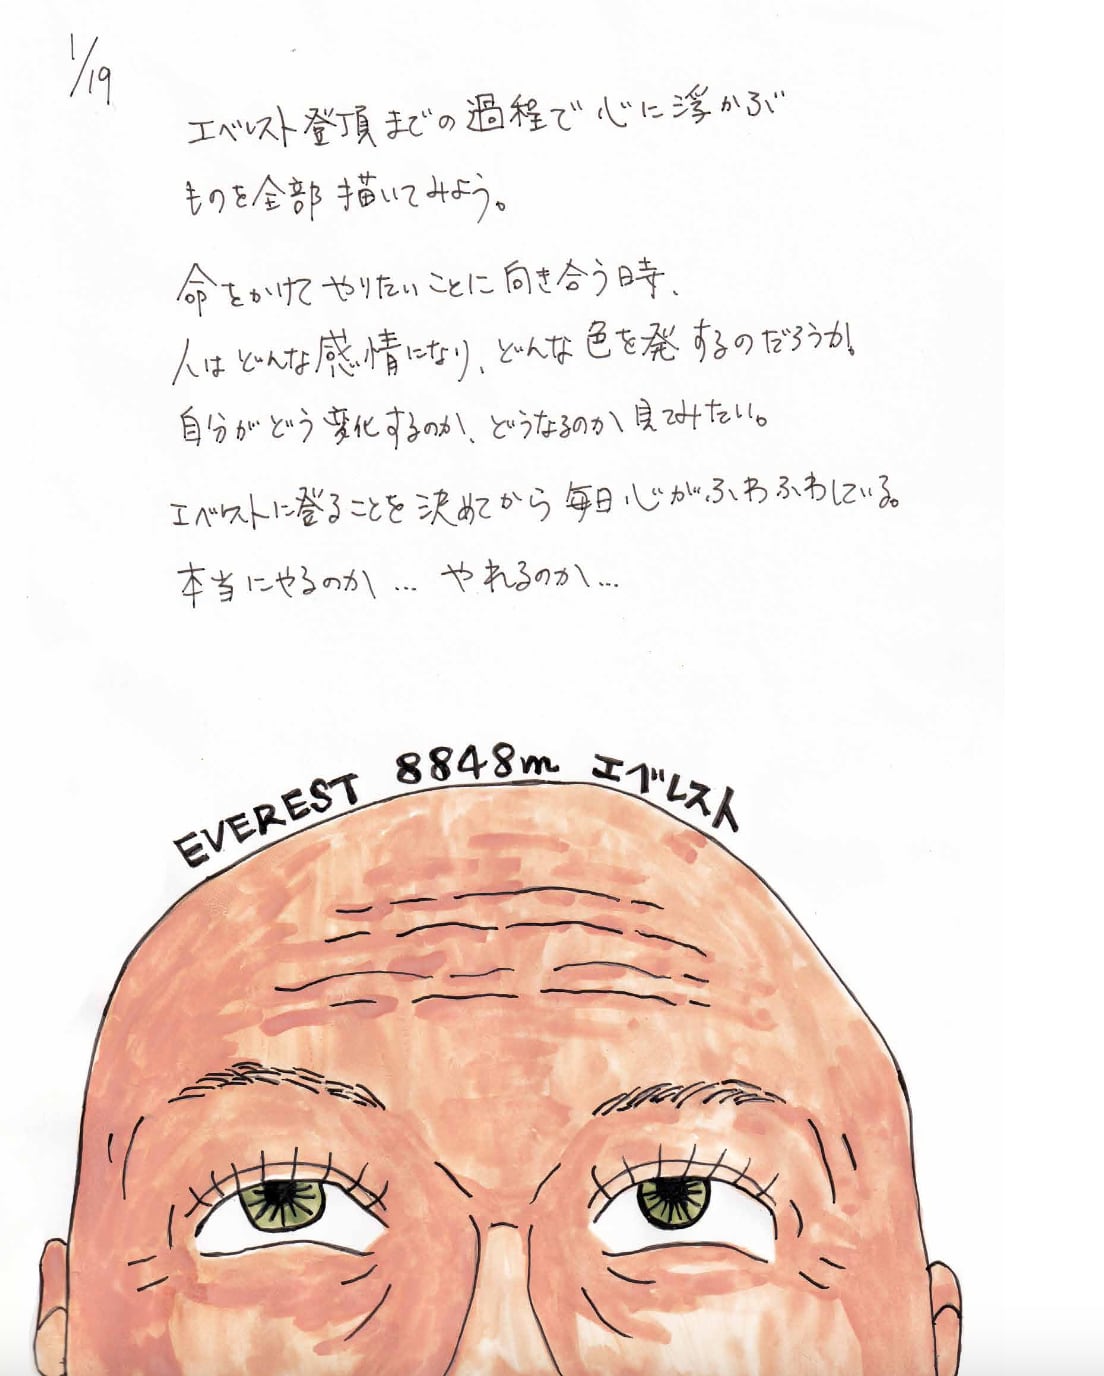 1/19
エベレスト登頂までの過程で心に浮かぶ
ものを全部描いてみよう。
命をかけてやりたいことに向き合う時、
人はどんな感情になり、どんな色を発するのだろうか。
自分がどう変化するのか、どうなるのか見てみたい。
エベレストに登ることを決めてから毎日心がふわふわしている。
本当にやるのか… やれるのか…
EVEREST 8848m エベレスト